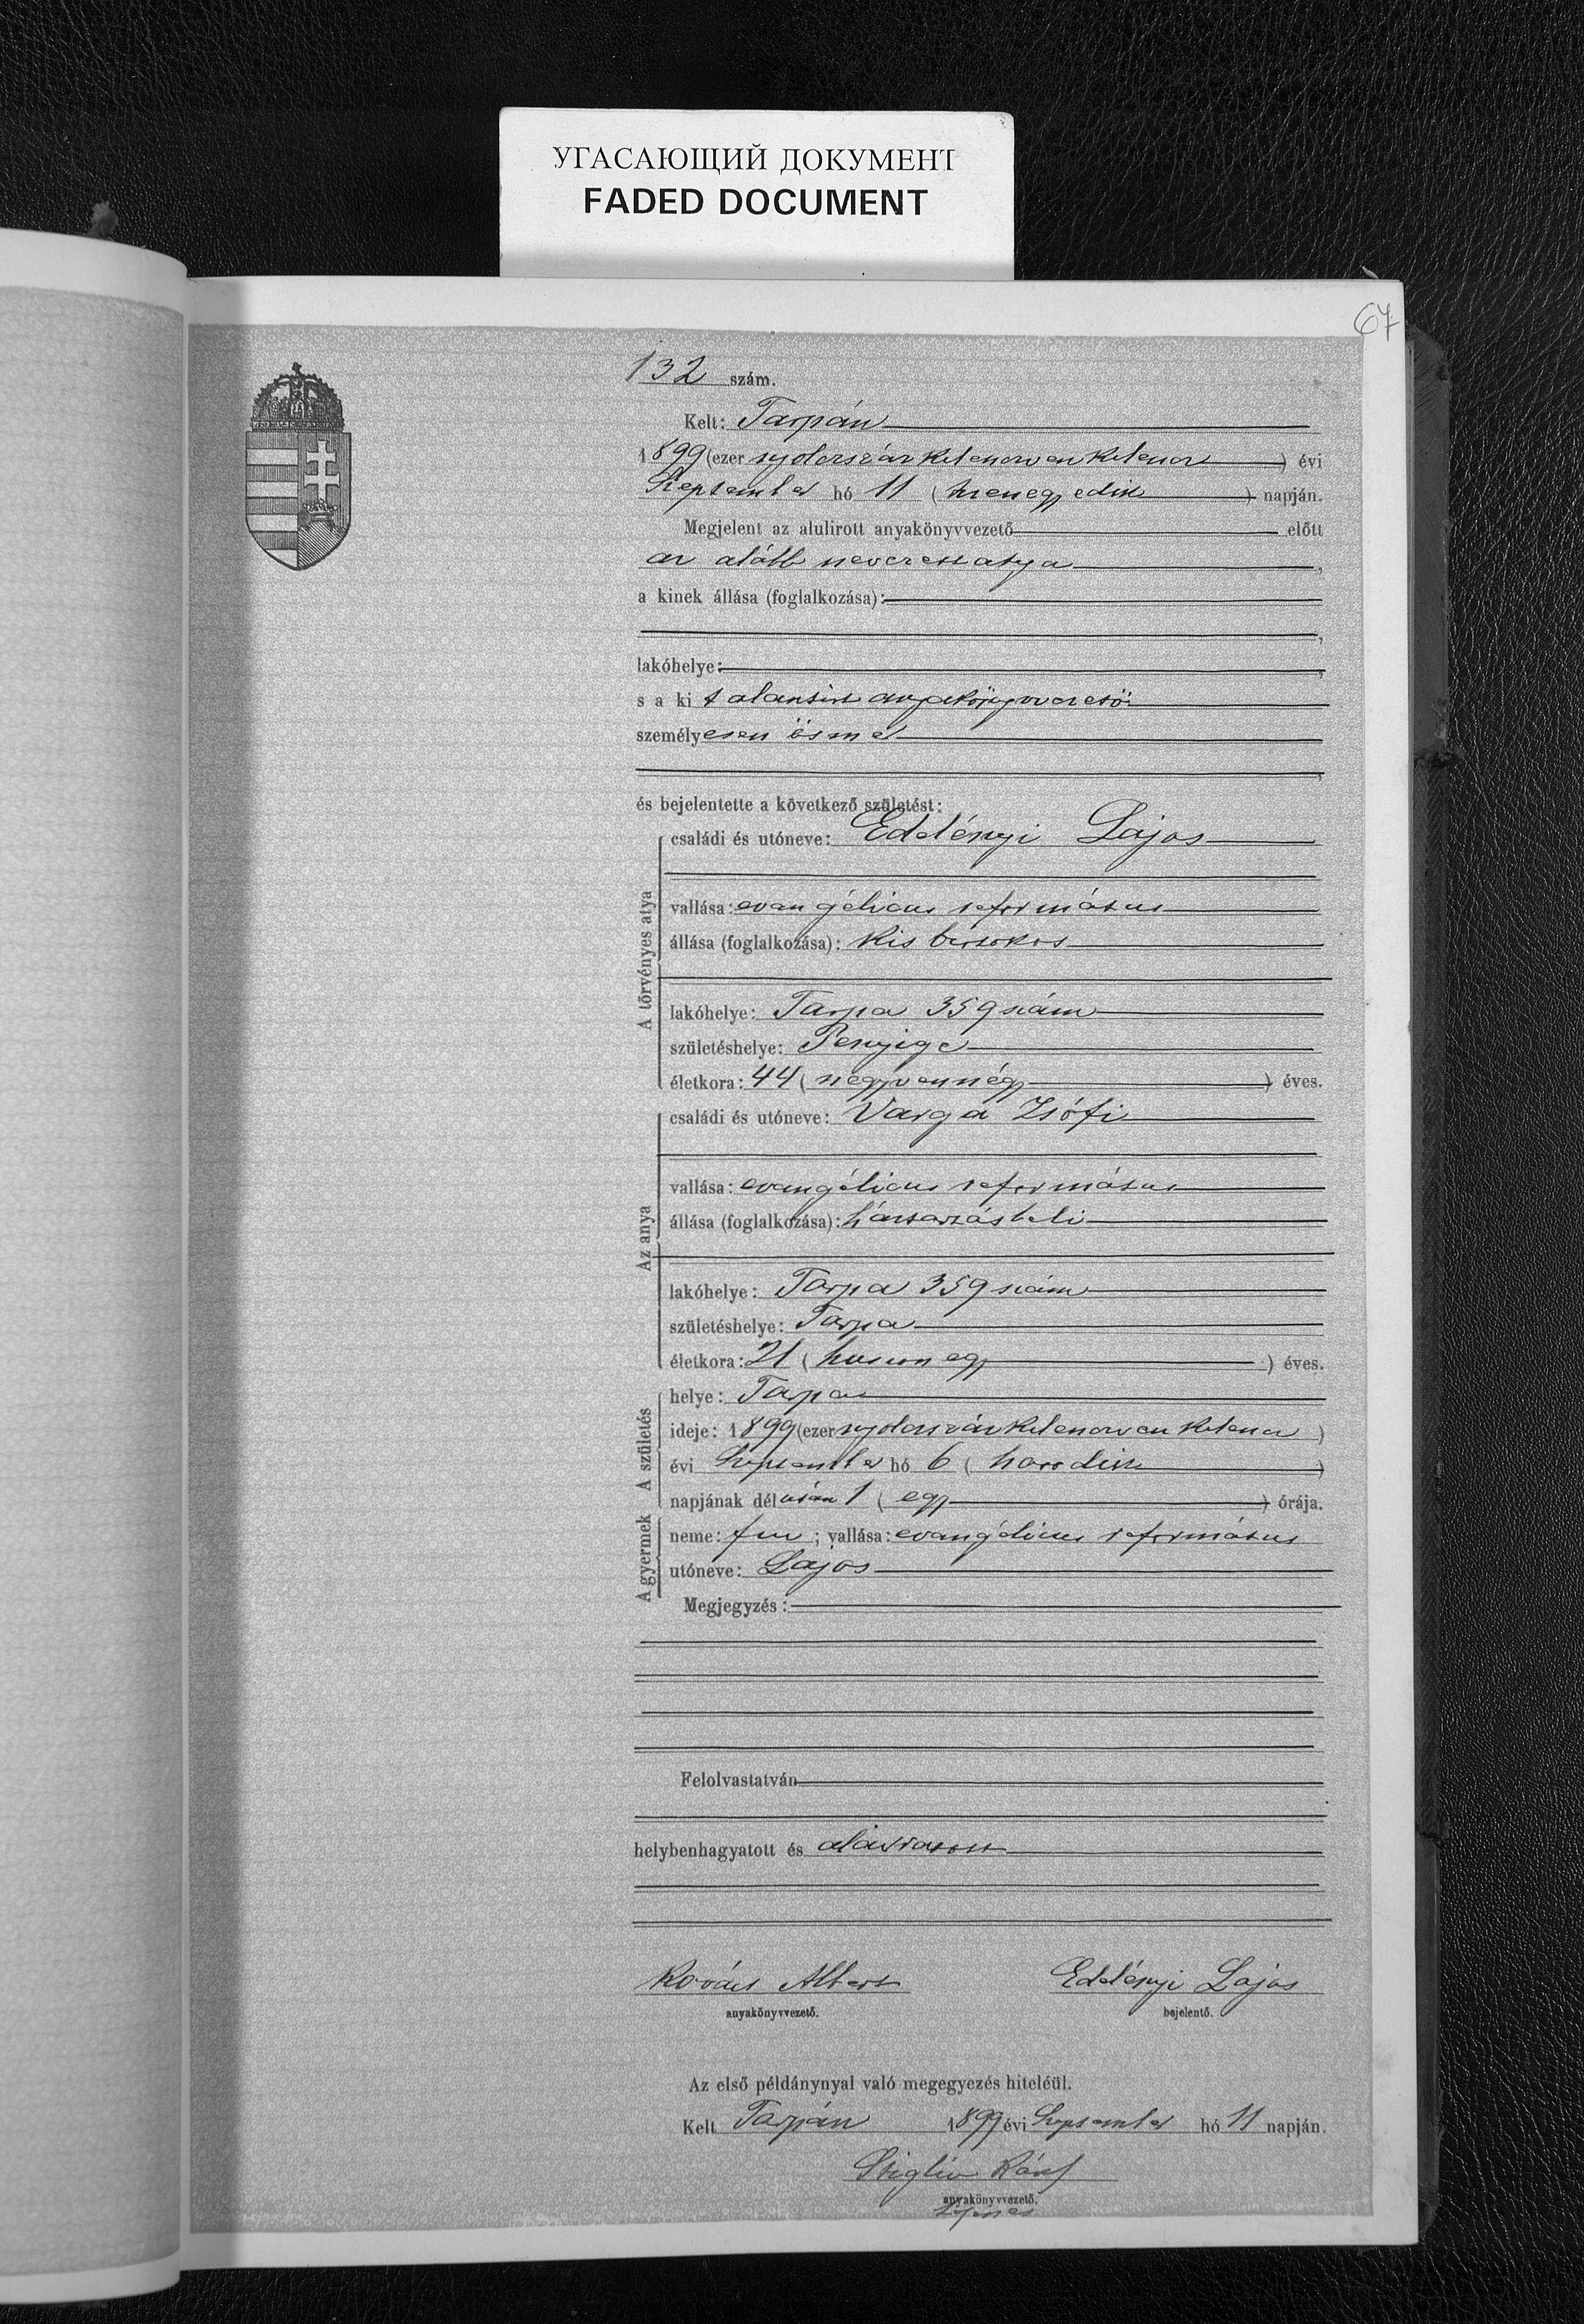 УГАСАЮЩИЙ ДОКУМЕНТ
FADED DOCUMENT
67
132 szám.
Kelt: Tarpán
1899 (ezer nyolczszáz kilenczven kilencz) évi
September hó 11 (tizenegyedik) napján.
Megjelent az alulirott anyakönyvvezető előtt
az alább nevezett atya,
a kinek állása (foglalkozása):
lakóhelye:
s a ki t alantírt anyakönyvvezető
személyesen ösmer
és bejelentette a következő születést:
A törvényes atya
családi és utóneve: Edelényi Lajos
vallása: evangélicus református
állása (foglalkozása): kis birtokos
lakóhelye: Tarpa 359 szám
születéshelye: Penyige
életkora: 44 (negyvennégy) éves.
Az anya
családi és utóneve: Varga Zsófi
vallása: evangélicus református
állása (foglalkozása): háztartásbeli
lakóhelye: Tarpa 359 szám
születéshelye: Tarpa
életkora: 21 (huszonegy) éves.
A születés
helye: Tarpa
ideje: 1899 (ezer nyolczszáz kilenczven kilencz)
évi September hó 6 (hatodik)
napjának délután 1 (egy) órája.
A gyermek
neme: fiu; vallása: evangélicus református
utóneve: Lajos
Megjegyzés:
Felolvastatván
helybenhagyatott és aláiratott
Kovács Albert Edelényi Lajos
anyakönyvvezető. bejelentő.
Az első példánynyal való megegyezés hiteléül.
Kelt Tarpán 1899 évi September hó 11 napján.
anyakönyvvezető.